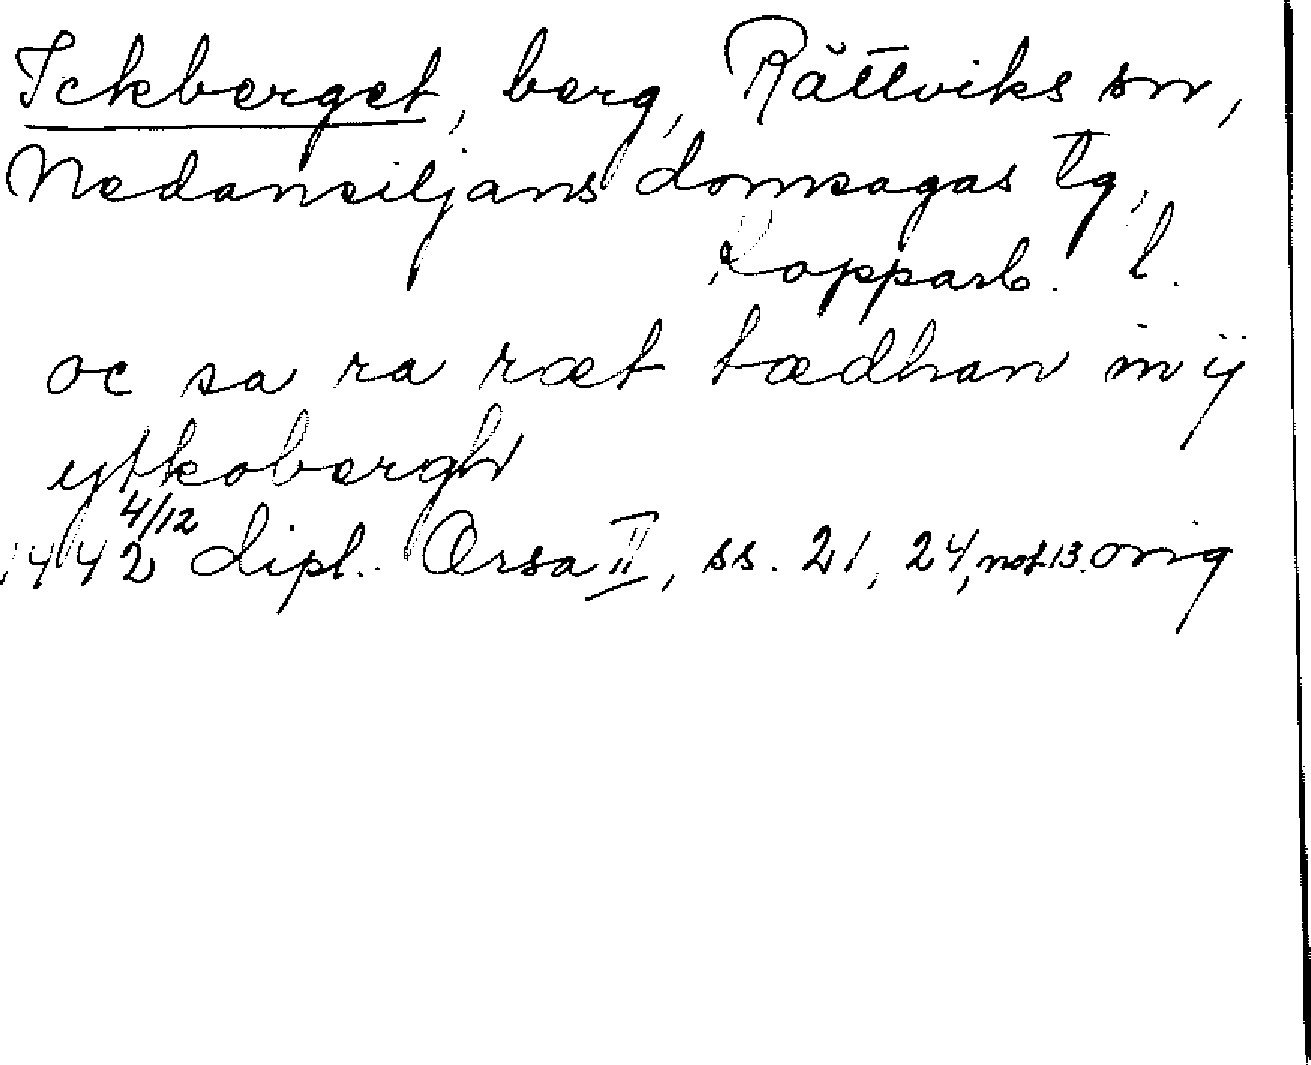 Ickberget, berg, Rättviks sn,
Nedansiljans domsagas tg,
Kopparb. l.
oc sa ra ræt tædhan in ÿ
ytkobergh
1442 4/12 dipl. Orsa II, ss. 21, 24, not 13. orig